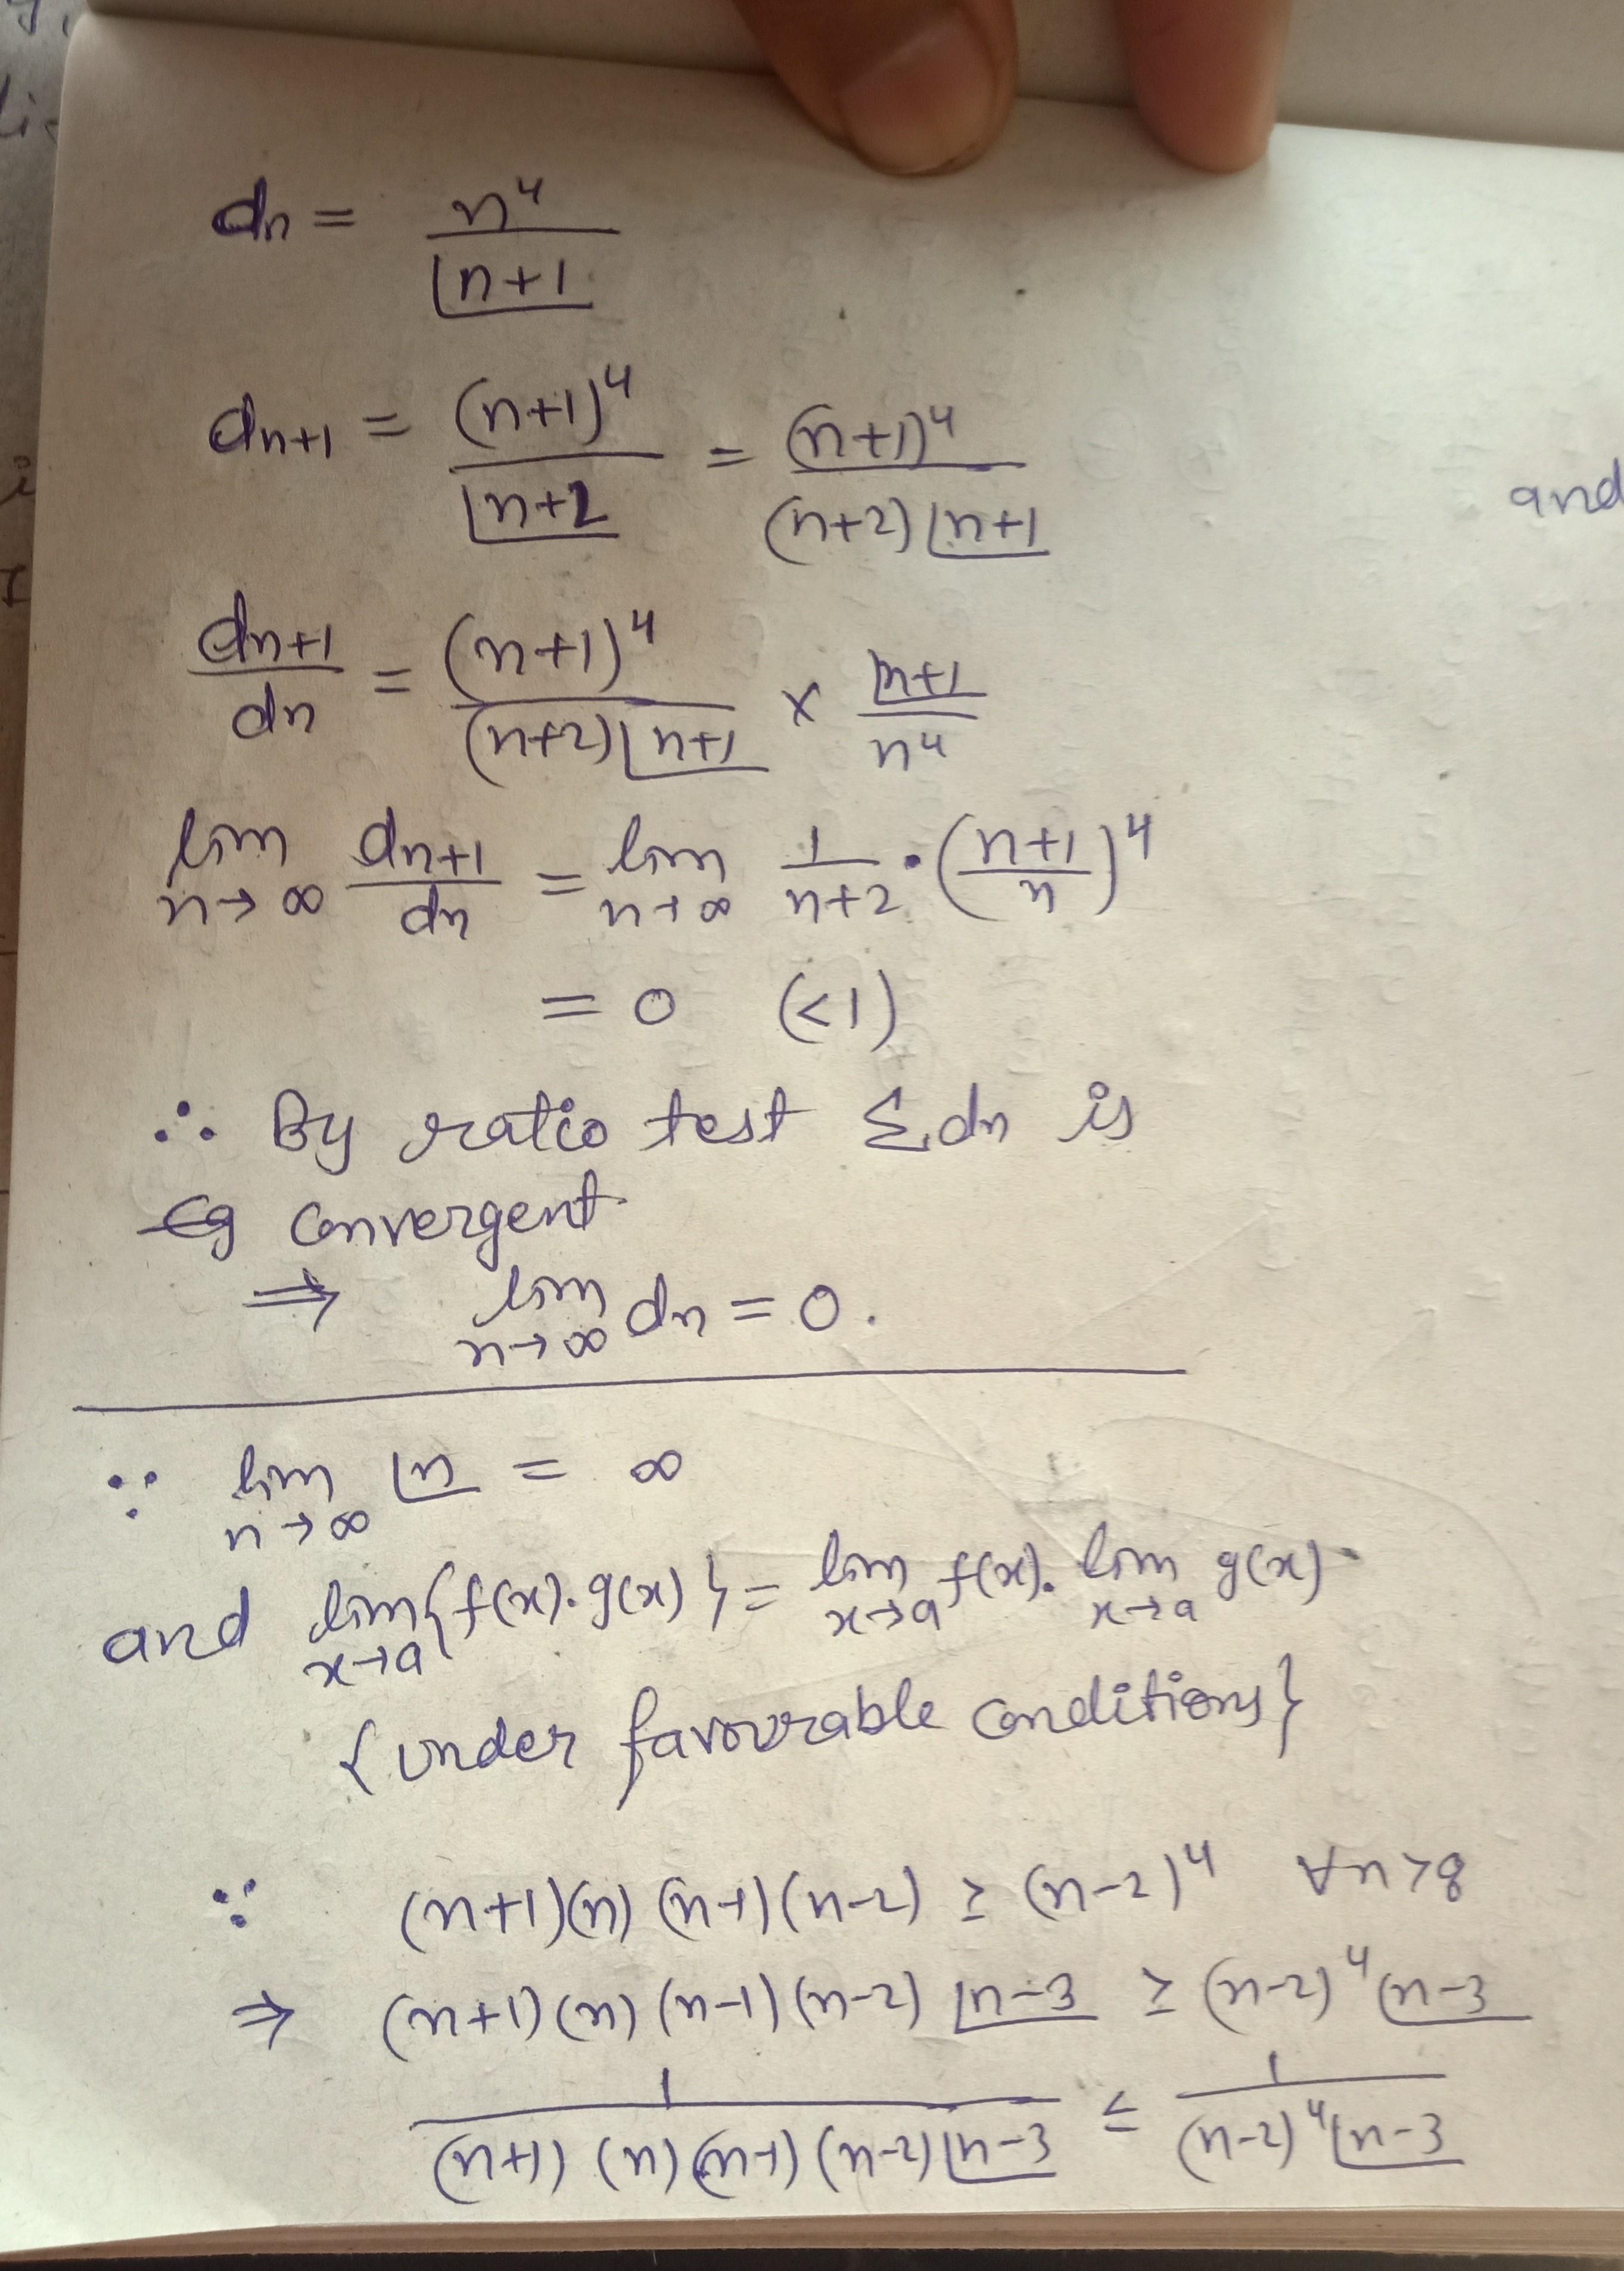 dn = n⁴ / ⌊n+1
dn+1 = (n+1)⁴ / ⌊n+2 = (n+1)⁴ / (n+2)⌊n+1
and
dn+1 / dn = (n+1)⁴ / (n+2)⌊n+1 × ⌊n+1 / n⁴
lim n→∞ dn+1 / dn = lim n→∞ 1 / n+2 · (n+1 / n)⁴
= 0 (<1)
∴ By ratio test Σdn is
convergent
⇒ lim n→∞ dn = 0.
∵ lim n→∞ ⌊n = ∞
and lim x→a {f(x).g(x)} = lim x→a f(x). lim x→a g(x)
{under favourable conditions}
∵ (n+1)(n)(n-1)(n-2) ≥ (n-2)⁴ ∀n>8
⇒ (n+1)(n)(n-1)(n-2)⌊n-3 ≥ (n-2)⁴⌊n-3
1 / (n+1)(n)(n-1)(n-2)⌊n-3 ≤ 1 / (n-2)⁴⌊n-3